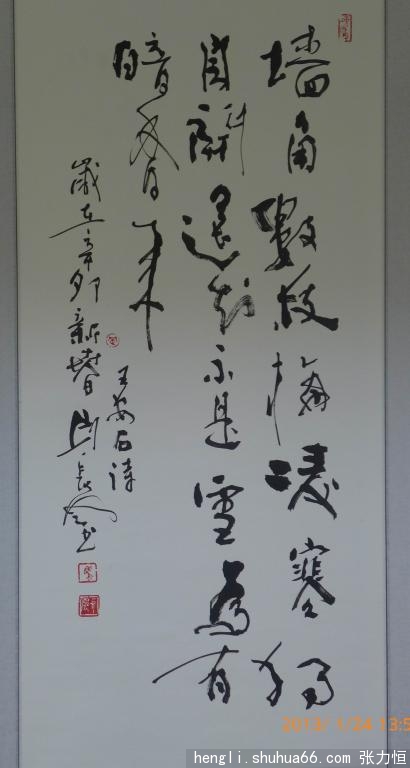 墙角數枝梅凌寒独
自開遥知不是雪為有
暗香来
王安石诗
歲在辛卯新春
2013/1/24 13:5
hengli.shuhua66.com 张力恒